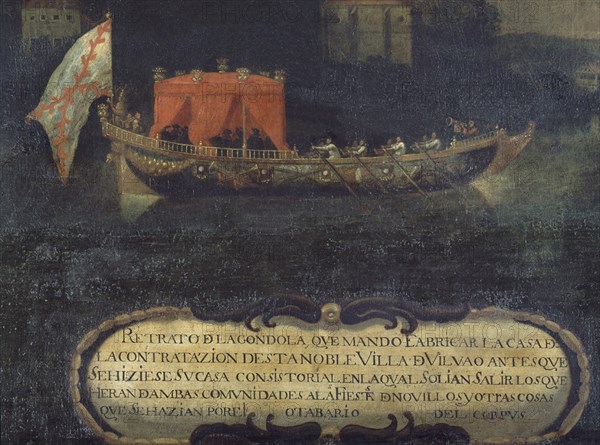 RETRATO Đ LA GONDOLA, QVE MANDO FABRICAR LA CASA Đ
LA CONTRATAZION DESTA NOBLE VILLA Đ VILVAO ANTES QVE
SE HIZIESE SV CASA CONSISTORIAL, EN LA QVAL SOLIAN SALIR LOS QVE
HERAN ĐAMBAS COMVNIDADES A LA FIESTA ĐNOVILLOS Y OTRAS COSAS
QVE SE HAZIAN POR EL O TABARIO DEL CORPVS